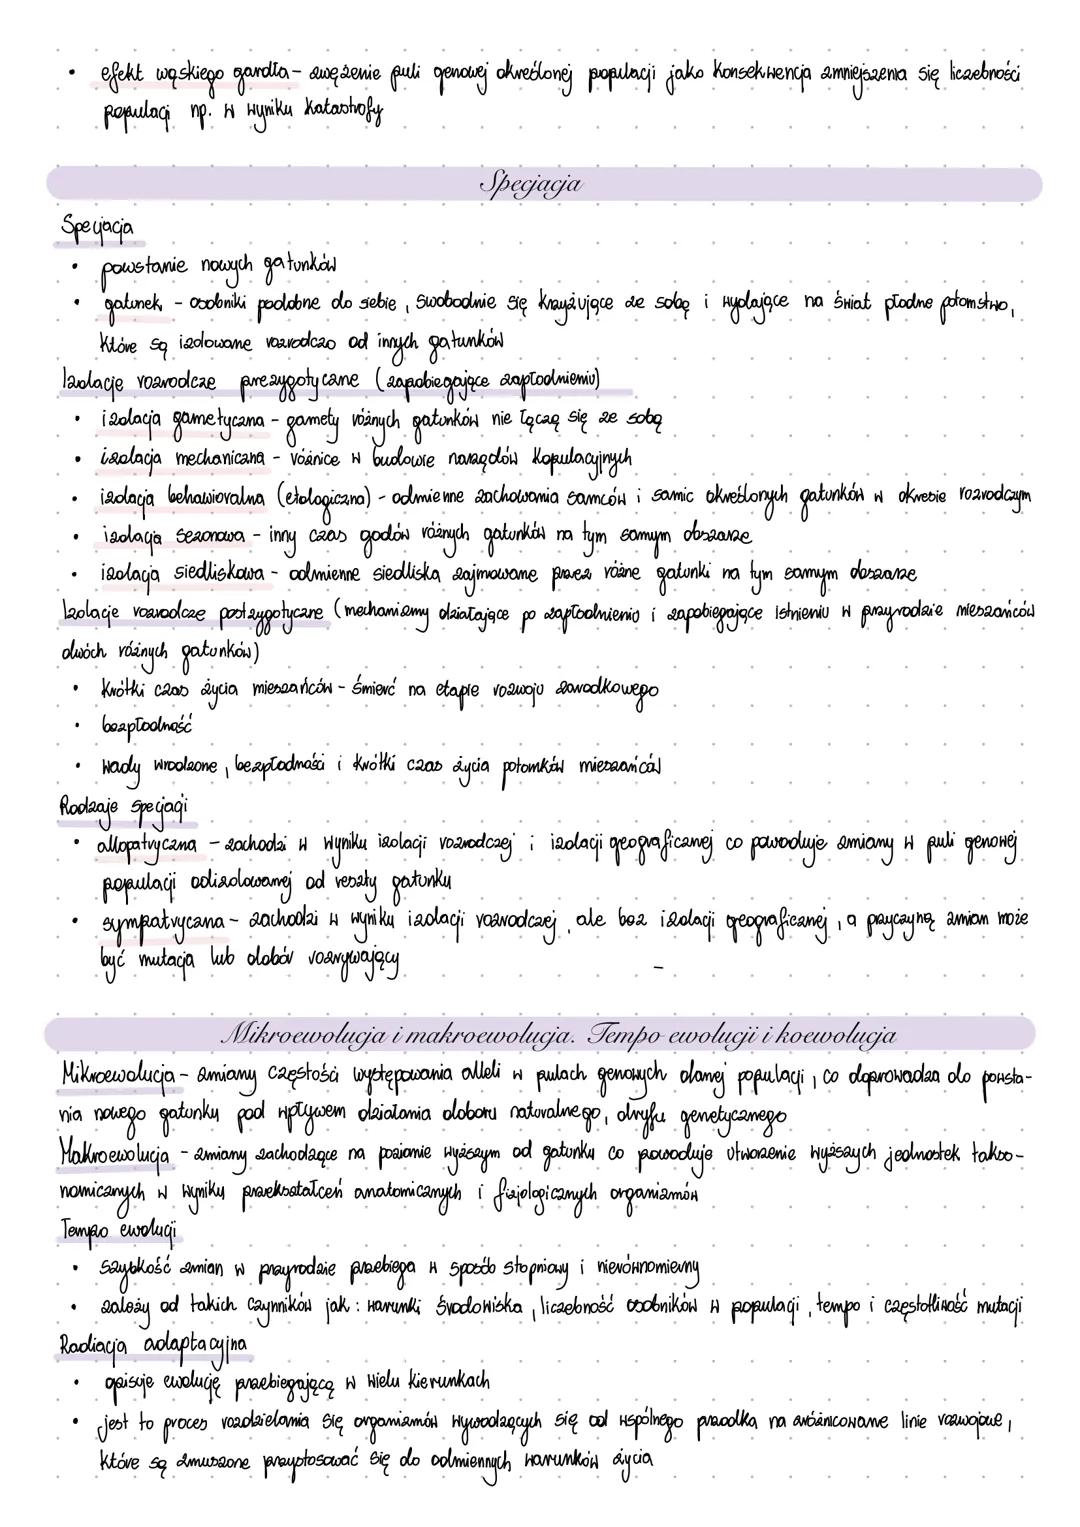 • efekt wąskiego gardła - zwężenie puli genowej określonej populacji jako konsekwencja zmniejszenia się liczebności
populacji np. w wyniku katastrofy
Specjacja
Specjacja
• powstanie nowych gatunków
• gatunek - osobniki podobne do siebie, swobodnie się krzyżujące ze sobą i wydające na świat płodne potomstwo,
które są izolowane rozrodczo od innych gatunków
Izolacje rozrodcze prezygotyczne (zapobiegające zapłodnieniu)
• izolacja gametyczna - gamety różnych gatunków nie łączą się ze sobą
• izolacja mechaniczna - różnice w budowie narządów kopulacyjnych
• izolacja behawioralna (etologiczna) - odmienne zachowania samców i samic określonych gatunków w okresie rozrodczym
• izolacja sezonowa - inny czas godów różnych gatunków na tym samym obszarze
• izolacja siedliskowa - odmienne siedliska zajmowane przez różne gatunki na tym samym obszarze
Izolacje rozrodcze postzygotyczne (mechanizmy działające po zapłodnieniu i zapobiegające istnieniu w przyrodzie mieszańców
dwóch różnych gatunków)
• krótki czas życia mieszańców - śmierć na etapie rozwoju zarodkowego
• bezpłodność
• wady wrodzone, bezpłodności i krótki czas życia potomków mieszańców
Rodzaje specjacji
• allopatryczna - zachodzi w wyniku izolacji rozrodczej i izolacji geograficznej co powoduje zmiany w puli genowej
populacji odizolowanej od reszty gatunku
• sympatryczna - zachodzi w wyniku izolacji rozrodczej, ale bez izolacji geograficznej, a przyczyną zmian może
być mutacja lub dobór rozrywający
Mikroewolucja i makroewolucja. Tempo ewolucji i koewolucja
Mikroewolucja - zmiany częstości występowania alleli w pulach genowych danej populacji, co doprowadza do powsta-
nia nowego gatunku pod wpływem działania doboru naturalnego, dryfu genetycznego
Makroewolucja - zmiany zachodzące na poziomie wyższym od gatunku co powoduje utworzenie wyższych jednostek takso-
nomicznych w wyniku przekształceń anatomicznych i fizjologicznych organizmów
Tempo ewolucji
• szybkość zmian w przyrodzie przebiega w sposób stopniowy i nierównomierny
• zależy od takich czynników jak: warunki środowiska, liczebność osobników w populacji, tempo i częstotliwość mutacji
Radiacja adaptacyjna
• opisuje ewolucję przebiegającą w wielu kierunkach
• jest to proces rozdzielania się organizmów wywodzących się od wspólnego przodka na zróżnicowane linie rozwojowe,
które są zmuszone przystosować się do odmiennych warunków życia